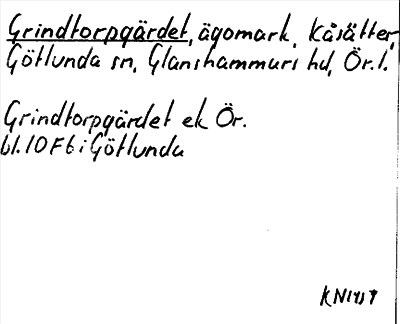 Grindtorpgärdet, ägomark, Kåsätter,
Götlunda sn, Glanshammars hd, Ör. l.
Grindtorpgärdet ek Ör.
bl. 10 F 6 i Götlunda